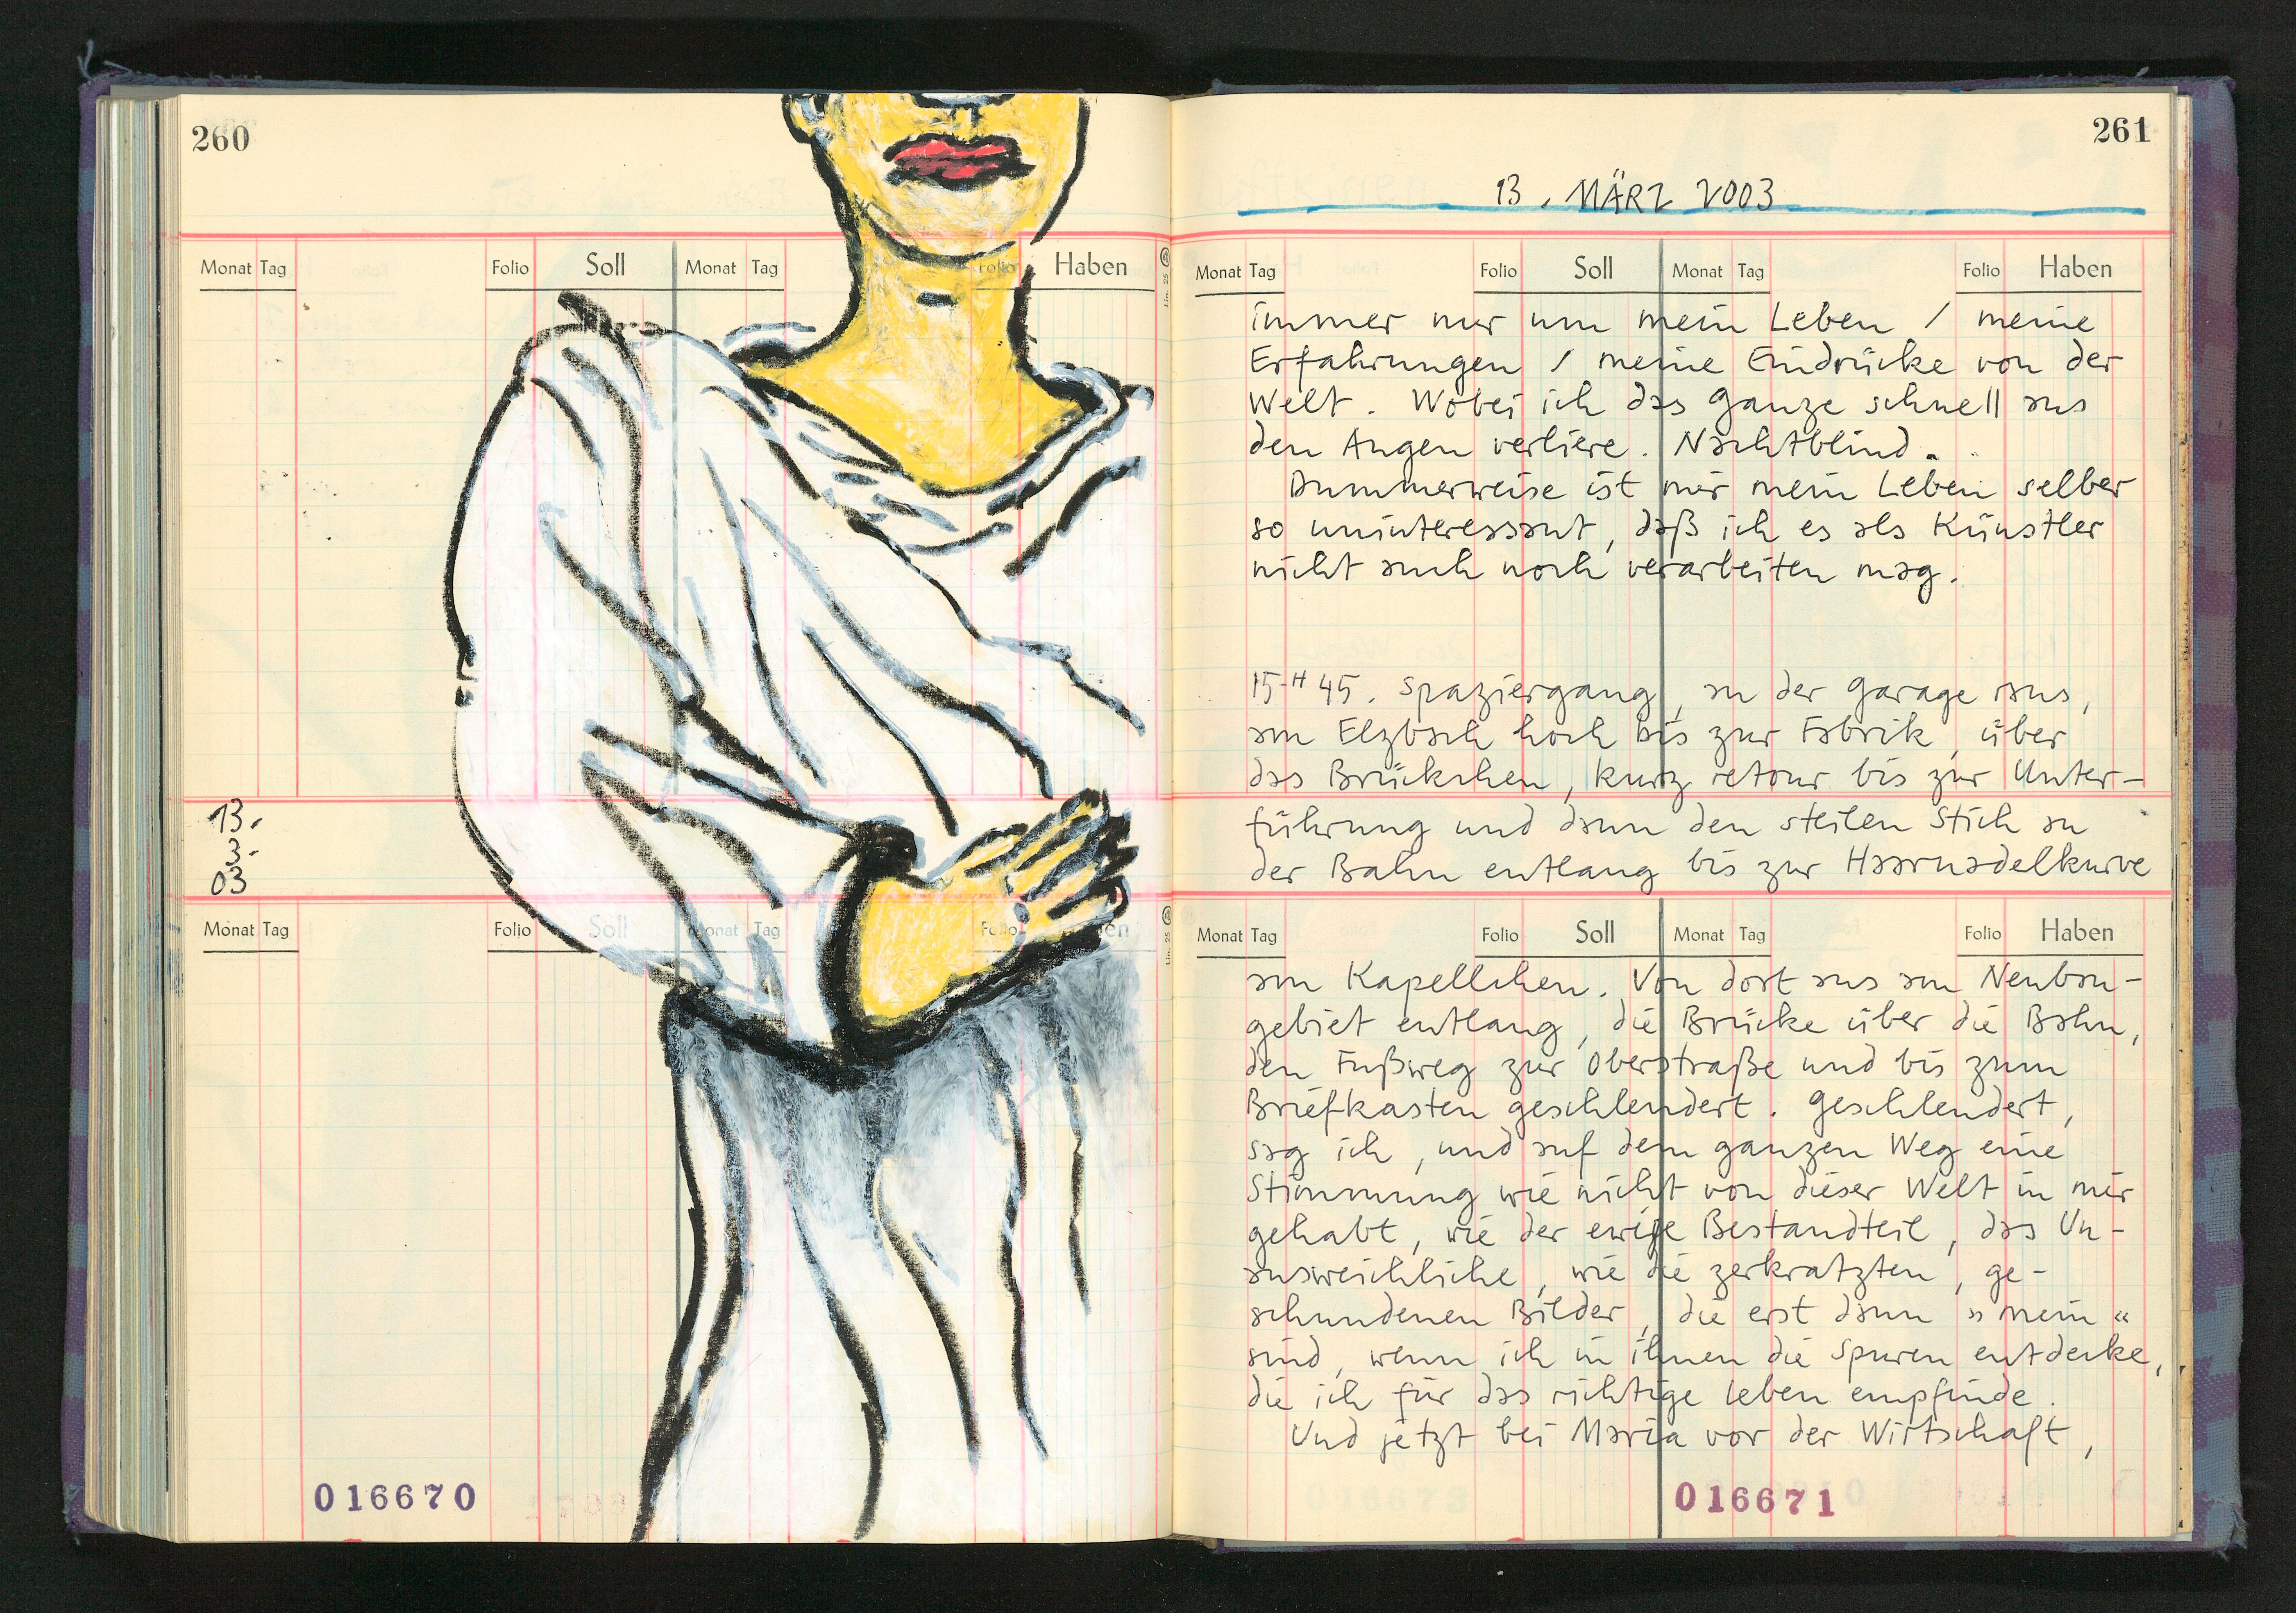 260
Monat Tag Folio Soll Monat Tag Folio Haben
13.
03
Monat Tag Folio Soll Monat Tag Folio
016670
261
13. MÄRZ 2003
Monat Tag Folio Soll Monat Tag Folio Haben
immer nur um mein Leben / meine
Erfahrungen / meine Eindrücke von der
Welt. Wobei ich das Ganze schnell aus
den Augen verliere. Nachtblind.
Dummerweise ist mir mein Leben selber
so uninteressant, daß ich es als Künstler
nicht auch noch verarbeiten mag.
15H45. Spaziergang, an der Garage raus,
am Elzbach hoch bis zur Fabrik, über
das Brückchen, kurz retour bis zur Unter-
führung und dann den steilen Stich an
der Bahn entlang bis zur Haarnadelkurve
Monat Tag Folio Soll Monat Tag Folio Haben
am Kapellchen. Von dort aus am Neubau-
gebiet entlang, die Brücke über die Bahn,
den Fußweg zur Oberstraße und bis zum
Briefkasten geschlendert. Geschlendert,
sag ich, und auf dem ganzen Weg eine
Stimmung wie nicht von dieser Welt in mir
gehabt, wie der ewige Bestandteil, das Un-
ausweichliche, wie die zerkratzten, ge-
schundenen Bilder, die erst dann »mein«
sind, wenn ich in ihnen die Spuren entdecke,
die ich für das richtige Leben empfinde.
Und jetzt bei Maria vor der Wirtschaft,
016671